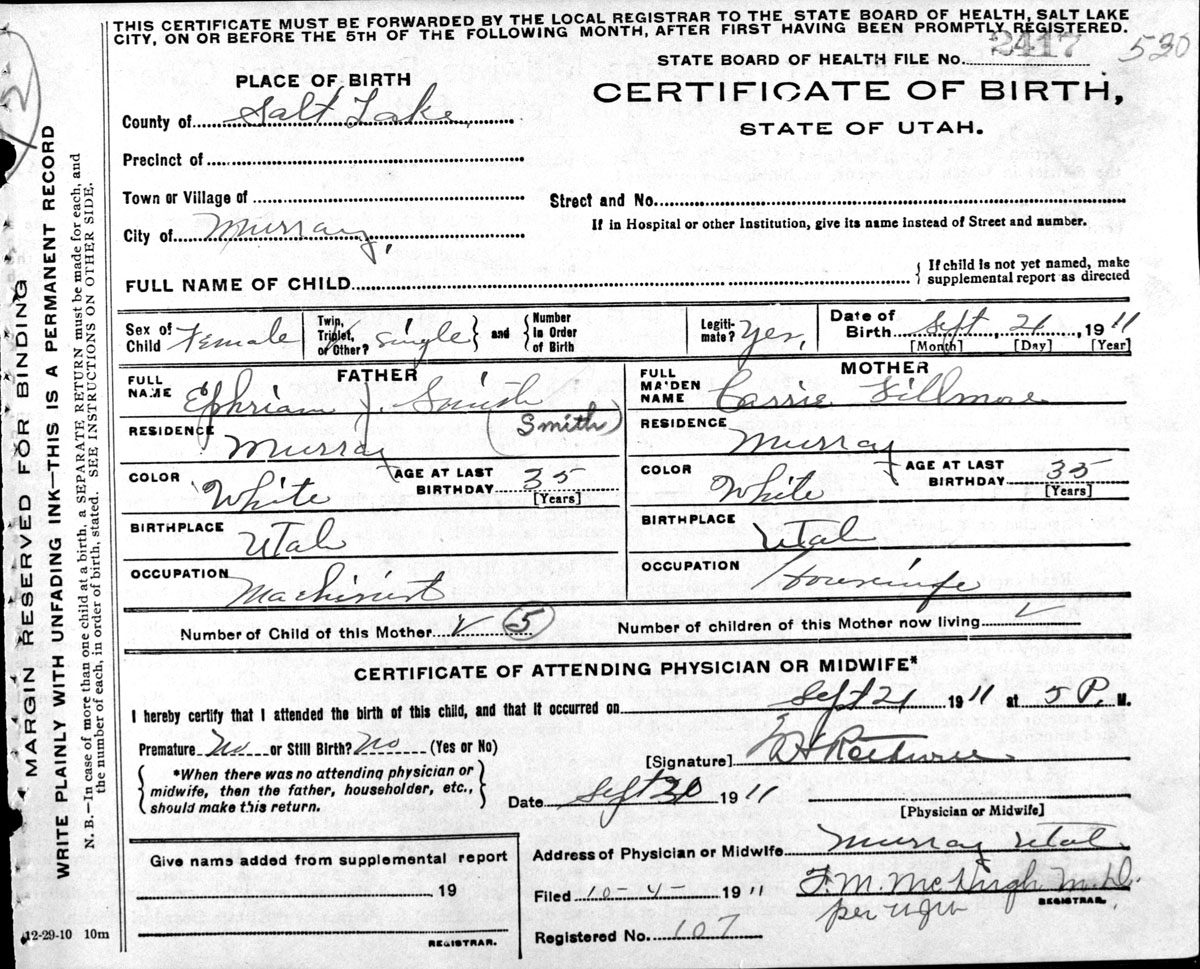 THIS CERTIFICATE MUST BE FORWARDED BY THE LOCAL REGISTRAR TO THE STATE BOARD OF HEALTH, SALT LAKE
CITY, ON OR BEFORE THE 5TH OF THE FOLLOWING MONTH, AFTER FIRST HAVING BEEN PROMPTLY REGISTERED.
STATE BOARD OF HEALTH FILE No. 2417 530
PLACE OF BIRTH
CERTIFICATE OF BIRTH,
STATE OF UTAH.
County of Salt Lake,
Precinct of
Town or Village of
Street and No.
City of Murray,
If in Hospital or other Institution, give its name instead of Street and number.
FULL NAME OF CHILD
If child is not yet named, make
supplemental report as directed
Sex of Child Female
Twin, Triplet, or Other? single and Number in Order of Birth
Legitimate? Yes,
Date of Birth Sept, 21, 1911
[Month] [Day] [Year]
FATHER
FULL NAME Ephriam J. Smith
(Smith)
RESIDENCE Murray
COLOR White
AGE AT LAST BIRTHDAY 35
[Years]
BIRTHPLACE Utah
OCCUPATION Machinist
MOTHER
FULL MAIDEN NAME Carrie Fillmore
RESIDENCE Murray
COLOR White
AGE AT LAST BIRTHDAY 35
[Years]
BIRTHPLACE Utah
OCCUPATION Housewife
Number of Child of this Mother 5
Number of children of this Mother now living
CERTIFICATE OF ATTENDING PHYSICIAN OR MIDWIFE*
I hereby certify that I attended the birth of this child, and that it occurred on Sept 21 1911 at 5 P. M.
Premature No or Still Birth? No (Yes or No)
*When there was no attending physician or
midwife, then the father, householder, etc.,
should make this return.
[Signature]
Date Sept 30 1911
[Physician or Midwife]
Give name added from supplemental report
19
REGISTRAR.
Address of Physician or Midwife Murray Utah
Filed 10-4- 1911 F. M. McHugh M.D.
REGISTRAR.
per
Registered No. 107
12-29-10 10m
MARGIN RESERVED FOR BINDING
WRITE PLAINLY WITH UNFADING INK—THIS IS A PERMANENT RECORD
N. B.—In case of more than one child at a birth, a SEPARATE RETURN must be made for each, and
the number of each, in order of birth, stated. SEE INSTRUCTIONS ON OTHER SIDE.